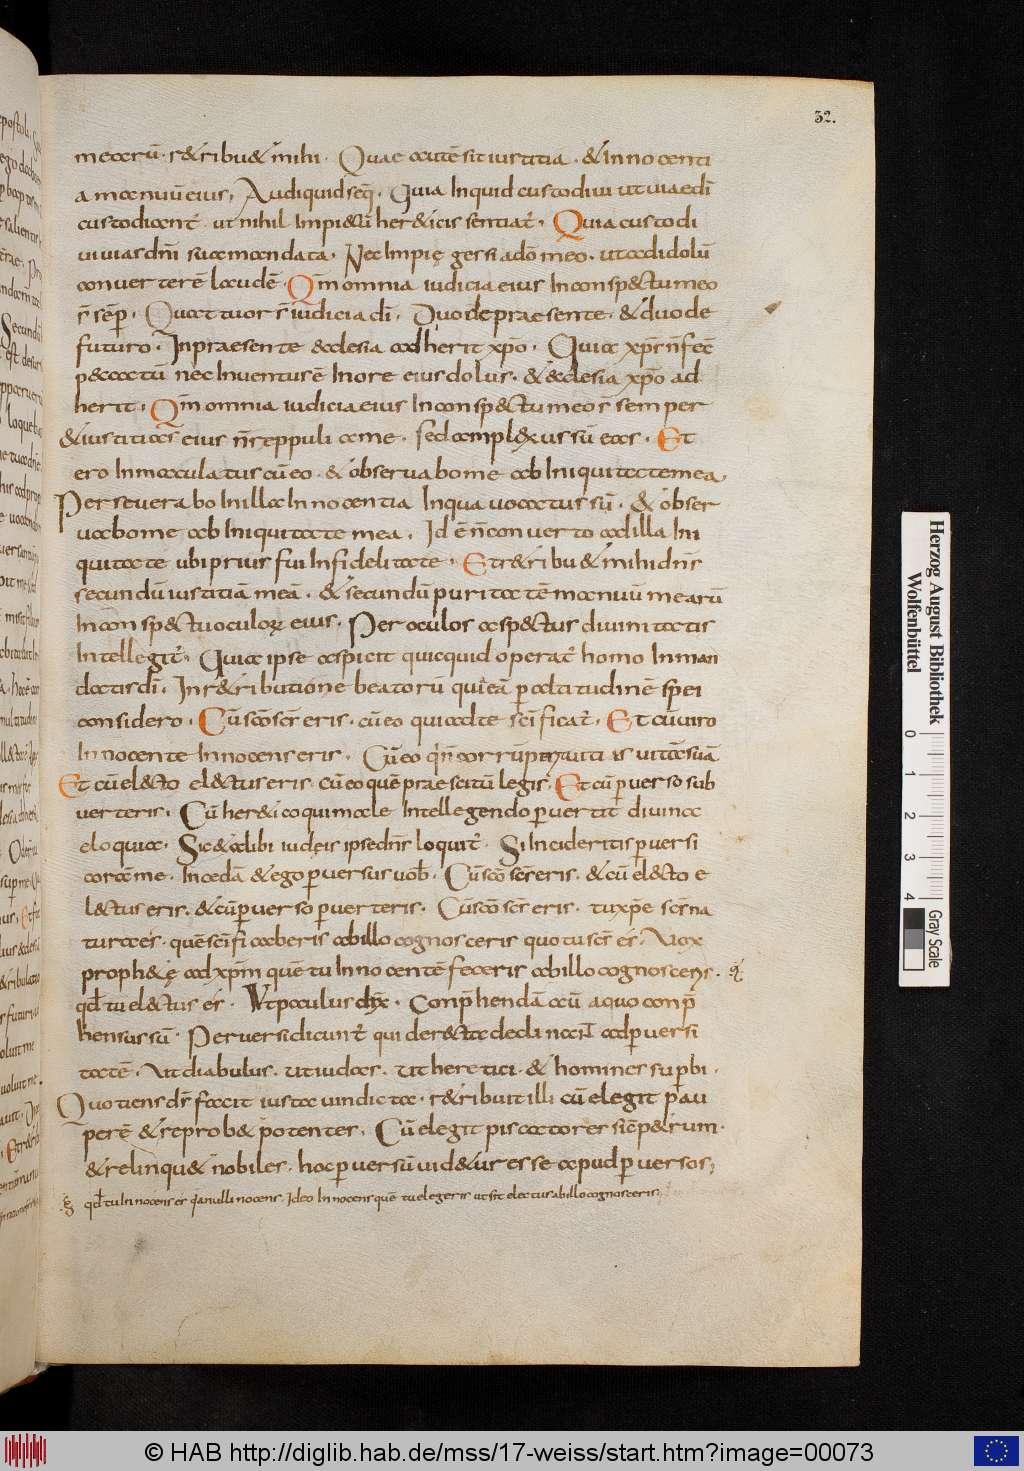 32.
mearū· r&ribu& mihi· Quae autē sit iustitia· & innocenti
a manuū eius, Audi quid seq̄. Quia inquid custodiui ut uiae dī
custodiant̄· ut nihil impi&ū her&icis sentiat̄· Quia custodi
ui uias dn̄i sua mandata· Nec impię gessi a dō meo· ut ad idolū
conuerterē laudē· Qm̄ omnia iudicia eius in consp&tu meo
s̄ sēp̄· Quattuor s̄ iudicia dī· Duo de praesente· & duo de
futuro· In praesente &clesia adherit xp̄o· Quia xp̄s n̄ fec̄
p&catū nec inuentus ē in ore eius dolus· & &clesia xp̄o ad
herit· Qm̄ omnia iudicia eius in consp&tu meo s̄ semper
& iustitias eius n̄ reppuli a me· sed amplexus sū eas· Et
ero inmaculatus cū eo· & obseruabo me ab iniquitate mea,
Perseuerabo in illa innocentia in qua uocatus sū· & obser
uabo me ab iniquitate mea· Id ē n̄ conuerto ad illa ini
quitate ubi prius fui infidelitate· Et r&ribu& mihi dn̄s
secundū iustitiā meā· & secundū puritatē manuū mearū
in consp&tu oculorꝝ eius· Per oculos asp&tus diuinitatis
intellegit̄· Quia ipse aspicit quicquid operat̄ homo in man
datis dī· In r&ributione beatorū qui eā p altitudinē spei
considero· Cū sc̄o sc̄s eris· cū eo qui ad te sc̄ificat̄· Et cū uiro
innocente innocens eris· Cū eo q̄ n̄ corrūp uitiis uitā suā
Et cū el&to el&tus eris· cū eo quē praescitū legis· Et cū puerso sub
uerteris· Cū her&ico qui male intellegendo puertit diuina
eloquia· Sic & alibi iudeis ipse dn̄s loquit̄· Si incideritis puersi
cora me· Incedā & ego peruersus uob̄· Cū sc̄o sc̄s eris· & cū el&to e
l&tus eris· & cū puerso puerteris· Cū sc̄o sc̄s eris· tu xp̄e sc̄s na
tura es· quē sc̄ificaberis ab illo cognosceris quo tu sc̄s es· Vox
proph&ę ad xp̄m quē tu innocentē feceris ab illo cognosceris·
qd̄ tu el&tus es· Vt paulus dix· Conp̄hendā aū a quo conp̄
hensus sū· Peruersi dicunt̄ qui de r&ta declinant ad puersi
tatē· Vt diabulus· ut iudas· ut heretici· & homines supbi·
Quotiens ds̄ facit iusta uindicta· r&ribuit illi cū elegit pau
perē & reprob& potenter, Cū elegit piscatores sic̄ p&rum·
& relinqu& nobiles· hoc puersū uid&ur esse apud puersos;
qd̄ tu innocens es q̄a nulli nocens· Ideo innocens quē tu elegeris ut sit electus ab illo cognosceris,
Herzog August Bibliothek
Wolfenbüttel
0
1
2
3
4
Gray Scale
© HAB http://diglib.hab.de/mss/17-weiss/start.htm?image=00073